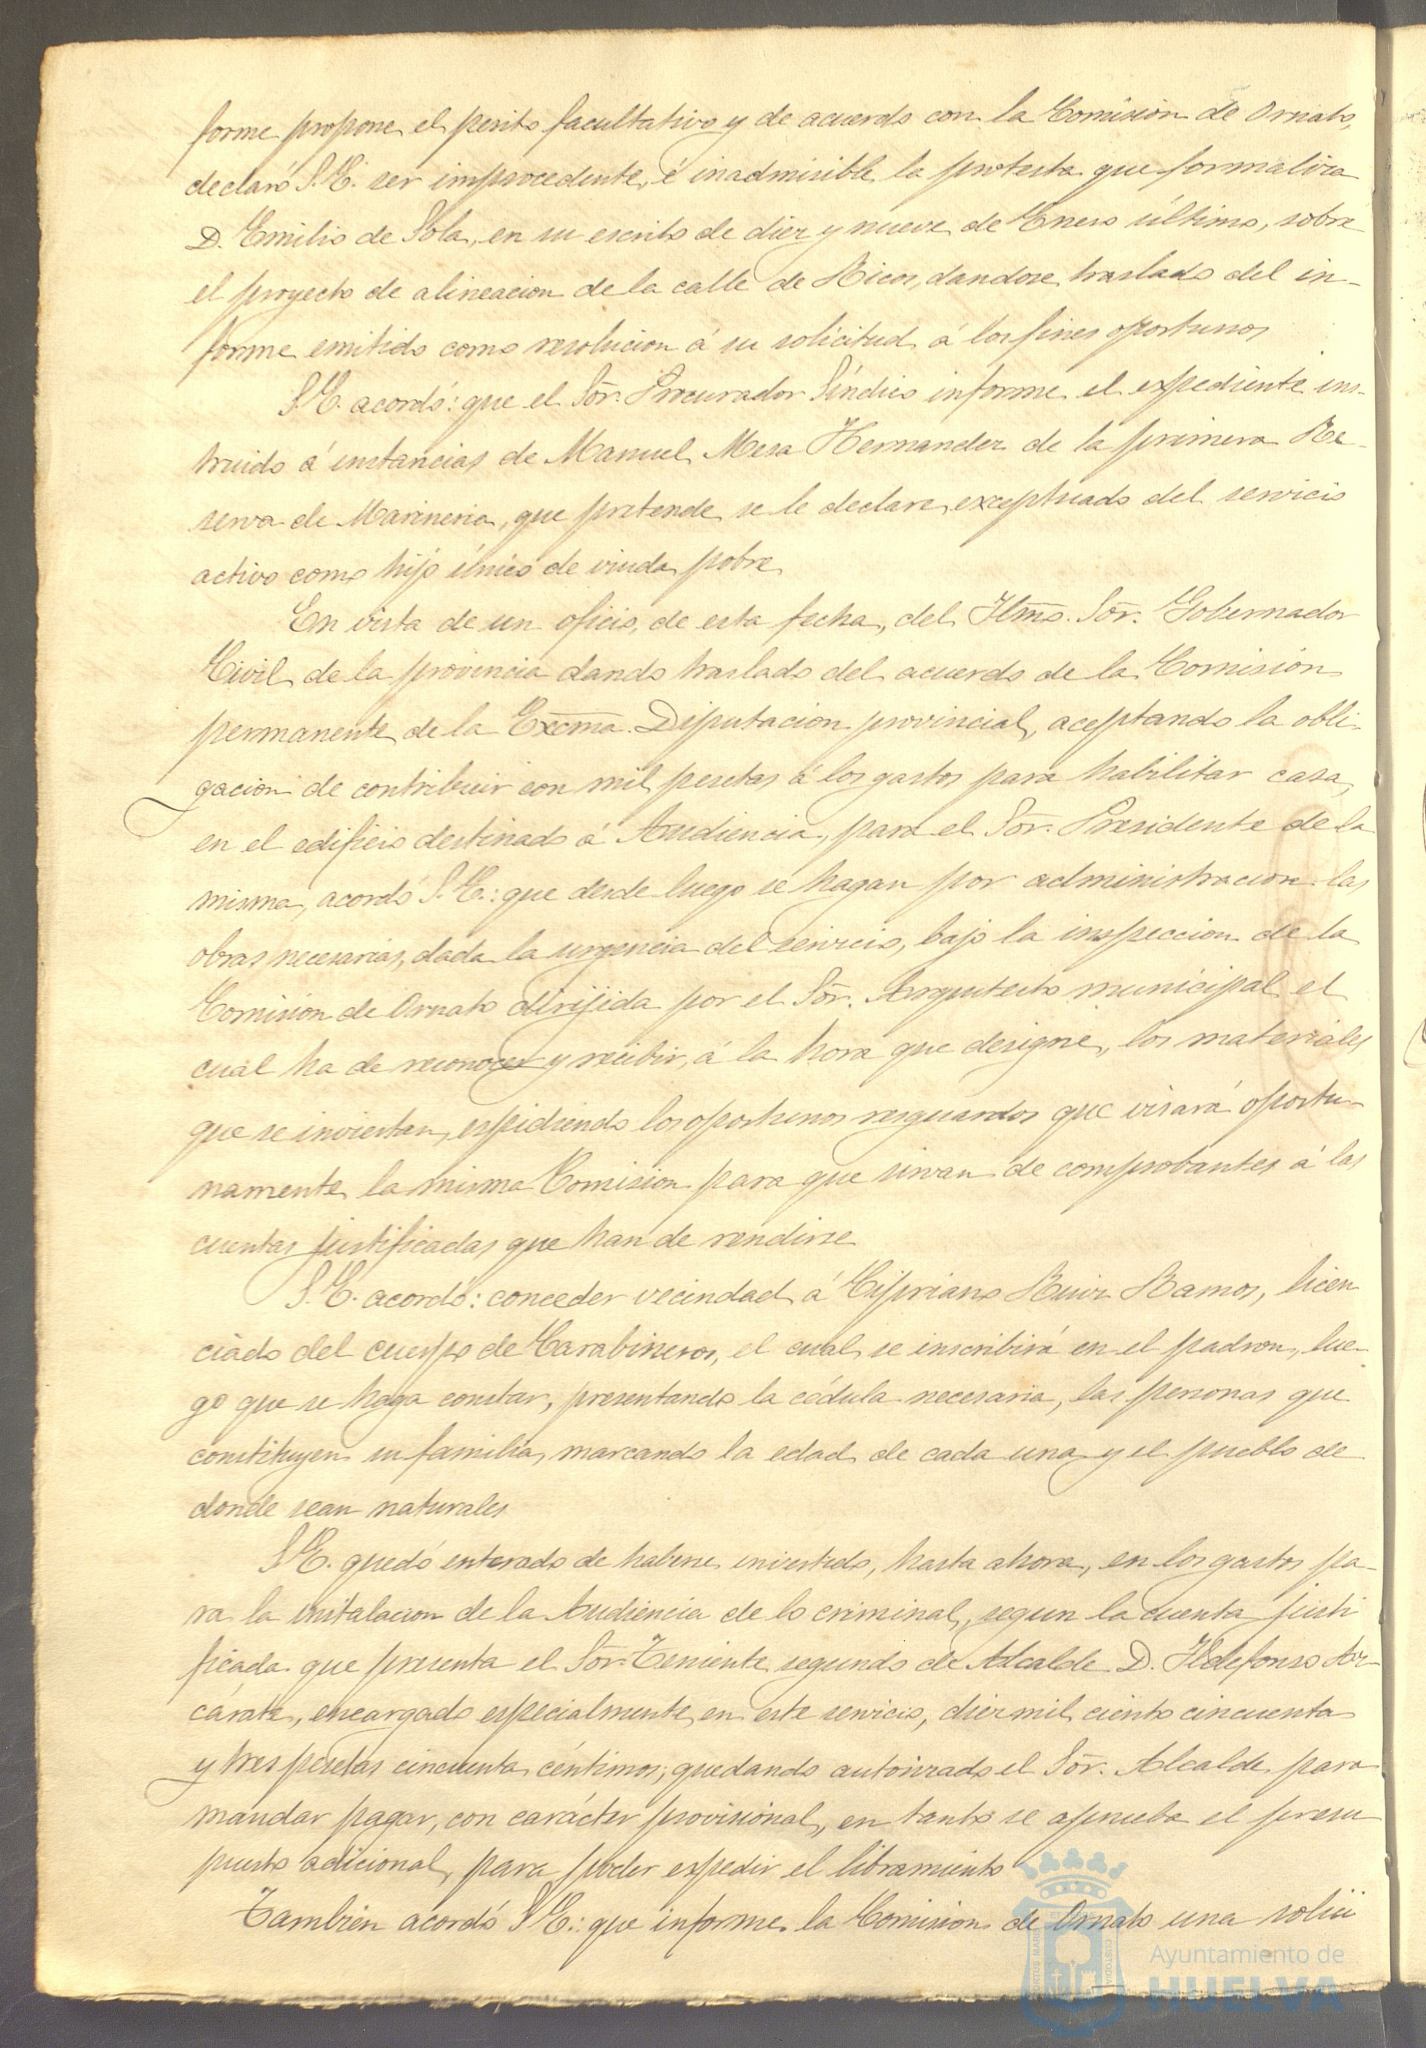 forme propone el perito facultativo y de acuerdo con la Comision de Ornato,
declaró S.E. ser improcedente, é inadmisible la protesta que formaliza
D. Emilio de Sola, en su escrito de diez y nueve de Enero último, sobre
el proyecto de alineacion de la calle de Ricos, dandose traslado del in-
forme emitido como resolucion á su solicitud á los fines oportunos
S.E. acordó: que el Sōr. Procurador Síndico informe el expediente ins-
truido á instancias de Manuel Mesa Hernandez de la primera Re-
serva de Marineria, que pretende se le declare exceptuado del servicio
activo como hijo único de viuda pobre
En vista de un oficio, de esta fecha, del Iltmo. Sōr. Gobernador
Civil de la provincia dando traslado del acuerdo de la Comision
permanente de la Excma. Diputacion provincial, aceptando la obli-
gacion de contribuir con mil pesetas á los gastos para habilitar casa,
en el edificio destinado á Audiencia, para el Sor. Presidente de la
misma, acordó S.E.: que desde luego se hagan por administracion las
obras necesarias, dada la urgencia del servicio, bajo la inspeccion de la
Comision de Ornato dirijida por el Sōr. Arquitecto municipal el
cual ha de reconocer y recibir, á la hora que designe, los materiales
que se inviertan, espidiendo los oportunos resguardos que visará oportu-
namente la misma Comision para que sirvan de comprobantes á las
cuentas justificadas que han de rendirse
S.E. acordó: conceder vecindad á Cipriano Ruiz Ramos, licen
ciado del cuerpo de Carabineros, el cual se inscribirá en el padron, lue-
go que se haga constar, presentando la cédula necesaria, las personas que
constituyen su familia, marcando la edad de cada una y el pueblo de
donde sean naturales
S.E. quedó enterado de haberse invertido, hasta ahora, en los gastos pa-
ra la instalacion de la Audiencia de lo criminal, segun la cuenta justi
ficada que presenta el Sōr. Teniente segundo de Alcalde D. Ildefonso Az-
cárate, encargado especialmente en este servicio, diez mil ciento cincuenta
y tres pesetas cincuenta céntimos; quedando autorizado el Sōr. Alcalde para
mandar pagar, con carácter provisional, en tanto se aprueba el presu
puesto adicional, para poder espedir el libramiento
Tambien acordó S.E.: que informe la Comision de Ornato una solici
Ayuntamiento de
HUELVA